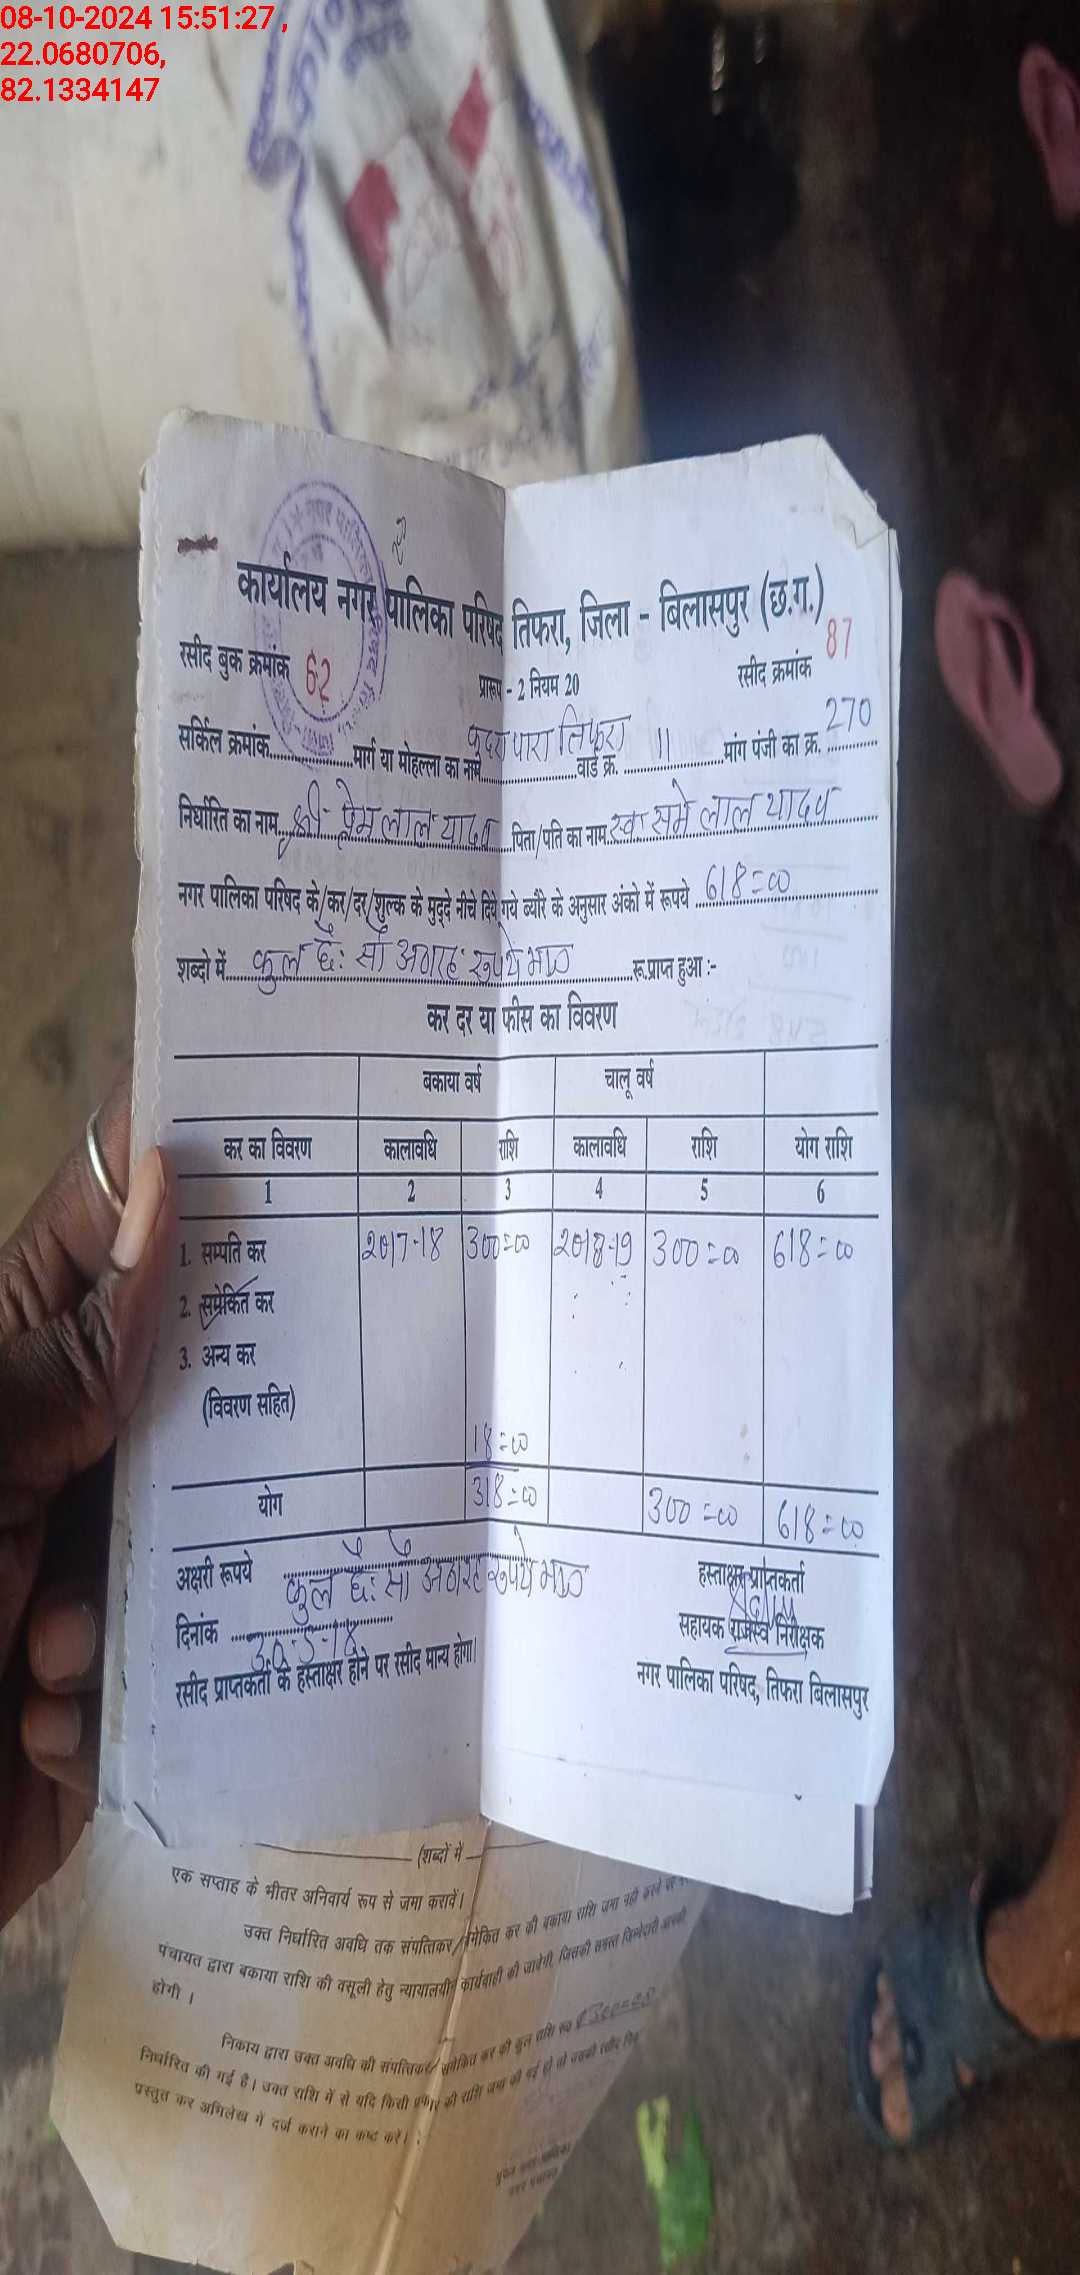 08-10-2024 15:51:27 ,
22.0680706,
82.1334147
कार्यालय नगर पालिका परिषद तिफरा, जिला - बिलासपुर (छ.ग.)
रसीद बुक क्रमांक 62 प्रारूप - 2 नियम 20 रसीद क्रमांक 87
सर्किल क्रमांक............मार्ग या मोहल्ला का नाम कुदरापारा तिफरा वार्ड क्र. 11 मांग पंजी का क्र. 270
निर्धारित का नाम श्री प्रेम लाल यादव पिता/पति का नाम स्व समे लाल यादव
नगर पालिका परिषद के/कर/दर/शुल्क के मुद्दे नीचे दिये गये ब्यौरे के अनुसार अंको में रूपये 618=00
शब्दो में कुल छै: सौ अठारह रूपये मात्र रू.प्राप्त हुआ :-
कर दर या फीस का विवरण
बकाया वर्ष चालू वर्ष
कर का विवरण कालावधि राशि कालावधि राशि योग राशि
1 2 3 4 5 6
1. सम्पति कर 2017-18 300=00 2018-19 300=00 618=00
2. समेकित कर
3. अन्य कर
(विवरण सहित)
18=00
योग 318=00 300=00 618=00
अक्षरी रूपये कुल छै: सौ अठारह रूपये मात्र
हस्ताक्षर प्राप्तकर्ता
दिनांक 30-5-18
सहायक राजस्व निरीक्षक
रसीद प्राप्तकर्ता के हस्ताक्षर होने पर रसीद मान्य होगा।
नगर पालिका परिषद, तिफरा बिलासपुर
(शब्दों में
एक सप्ताह के भीतर अनिवार्य रूप से जमा करावें।
उक्त निर्धारित अवधि तक संपत्तिकर/समेकित कर की बकाया राशि जमा नही करने पर
पंचायत द्वारा बकाया राशि की वसूली हेतु न्यायालयीन कार्यवाही की जावेगी, जिसकी समस्त जिम्मेदारी आपकी
होगी ।
निकाय द्वारा उक्त अवधि की संपत्तिकर/समेकित कर की कुल राशि रू
निर्धारित की गई है। उक्त राशि में से यदि किसी प्रकार की राशि जमा की गई हो तो उसकी रसीद
प्रस्तुत कर अभिलेख में दर्ज कराने का कष्ट करें।